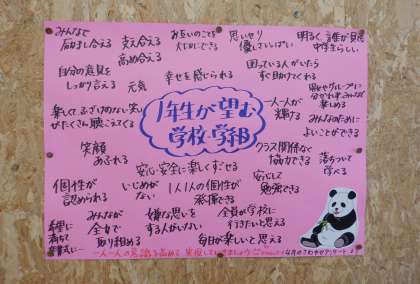 みんなで
高め合える
支え合える
高め合える
お互いのことを
大切にできる
思いやり
優しさいっぱい
明るく、誰が見ても
中学生らしい
自分の意見を
しっかり言える
元気
幸せを感じられる
困っている人がいたら
すぐ助けてくれる
楽しくて、ふざけのない笑い
がたくさん聴こえてくる
1年生が望む
学校・学年
一人一人が
輝ける
男女やグループに
分かれず、みんなで
楽しめる
みんなのために
よいことができる
笑顔
あふれる
安心・安全に楽しくすごせる
クラス関係なく
協力できる
落ちついて
学べる
個性が
認められる
いじめが
ない
1人1人の個性が
発揮できる
安心して
勉強できる
希望に
満ちて
みんなが
全力で
取り組める
嫌な思いを
する人がいない
全員が学校に
行きたいと思える
毎日が楽しいと思える
一人一人の意識を高め、実現していきましょう